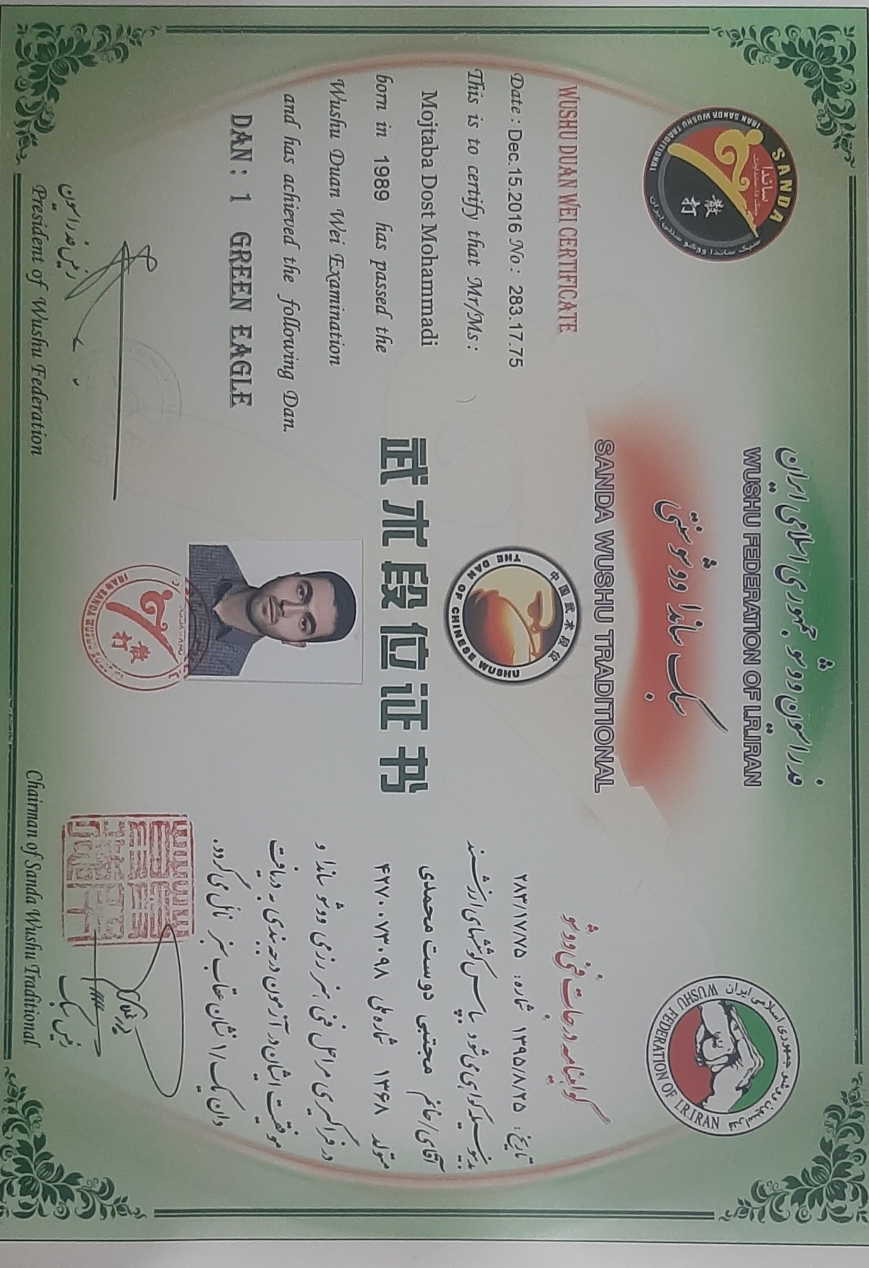 فدراسیون ووشو جمهوری اسلامی ایران
WUSHU FEDERATION OF I.R.IRAN
سبک ساندا ووشو سنتی
SANDA WUSHU TRADITIONAL
SANDA
ساندا
散打
IRAN SANDA WUSHU TRADITIONAL
سبک ساندا ووشو سنتی ایران
فدراسیون ووشو جمهوری اسلامی ایران
WUSHU FEDERATION OF I.R.IRAN
中国武术段位
THE DAN OF CHINESE WUSHU
武术段位证书
WUSHU DUAN WEI CERTIFICATE
Date : Dec.15.2016 No : 283.17.75
This is to certify that Mr/Ms :
Mojtaba Dost Mohammadi
born in 1989 has passed the
Wushu Duan Wei Examination
and has achieved the following Dan.
DAN : 1 GREEN EAGLE
رئیس فدراسیون
President of Wushu Federation
گواهینامه درجات فنی ووشو
تاریخ: ۱۳۹۵/۸/۲۵ شماره: ۲۸۳/۱۷/۷۵
بدینوسیله گواهی می شود بپاس کوششهای ارزشمند
آقای/خانم مجتبی دوست محمدی
متولد ۱۳۶۸ شماره ملی ۴۲۷۰۰۷۳۰۹۸
در فراگیری مراحل فنی هنر رزمی ووشو ساندا و
موفقیت ایشان در آزمون درجه بندی به دریافت
دان یک/۱ نشان عقاب سبز نائل می گردد.
رئیس سبک
Chairman of Sanda Wushu Traditional
IRAN SANDA WUSHU
散打